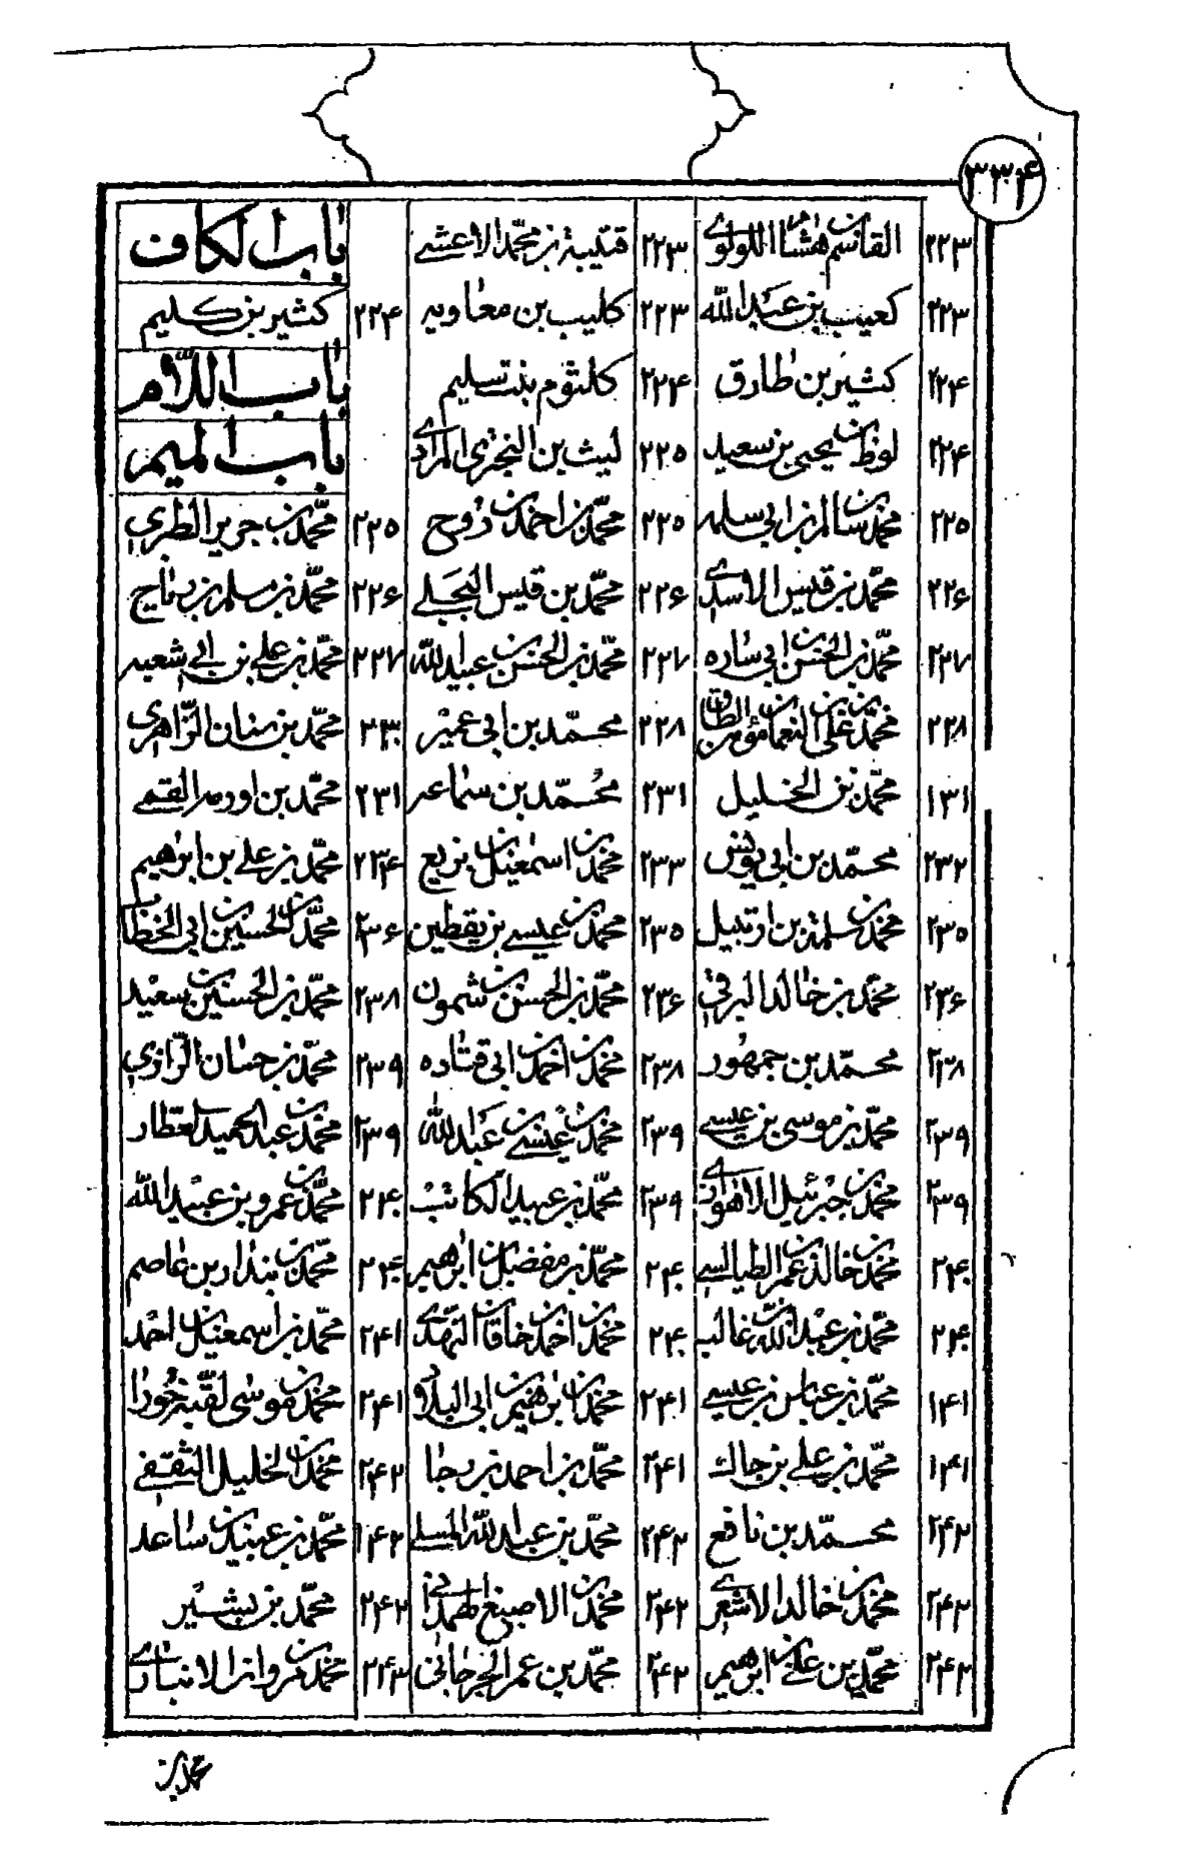 ۳۳۴
۲۲۳ القاسم بن هشام اللولوی ۲۲۳ قتیبة بن محمد الاعشی باب الکاف
۲۲۳ کعیب بن عبدالله ۲۲۳ کلیب بن معاویه ۲۲۴ کثیر بن کلیم
۲۲۴ کثیر بن طارق ۲۲۴ کلثوم بنت سلیم باب اللّام
۲۲۴ لوط بن یحیی بن سعید ۲۲۵ لیث بن البختری المرادی باب المیم
۲۲۵ محمد بن سالم بن ابی سلمه ۲۲۵ محمد بن احمد بن روح ۲۲۵ محمد بن جریر الطبری
۲۲۶ محمد بن قیس الاسدی ۲۲۶ محمد بن قیس البجلی ۲۲۶ محمد بن مسلم بن رباح
۲۲۷ محمد بن الحسن بن ابی ساره ۲۲۷ محمد بن الحسن بن عبیدالله ۲۲۷ محمد بن علی بن ابی شعبه
۲۲۸ محمد بن علی بن النعمان مؤمن الطاق ۲۲۸ محمد بن ابی عمیر ۲۳۰ محمد بن سنان الزاهری
۱۳۱ محمد بن الخلیل ۲۳۱ محمد بن سماعه ۲۳۱ محمد بن اورمه القمی
۲۳۲ محمد بن ابی یونس ۲۳۳ محمد بن اسمعیل بن بزیع ۲۳۴ محمد بن علی بن ابرهیم
۲۳۵ محمد بن سلمة بن ارتبیل ۲۳۵ محمد بن عیسی بن یقطین ۲۳۶ محمد بن الحسین بن ابی الخطاب
۲۳۶ محمد بن خالد البرقی ۲۳۶ محمد بن الحسن بن شمون ۲۳۸ محمد بن الحسین بن سعید
۲۳۸ محمد بن جمهور ۲۳۸ محمد بن احمد بن ابی قتاده ۲۳۹ محمد بن حسان الرازی
۲۳۹ محمد بن موسی بن عیسی ۲۳۹ محمد بن عیسی بن عبدالله ۲۳۹ محمد بن عبدالحمید العطار
۲۳۹ محمد بن جبرئیل الاهوازی ۲۳۹ محمد بن عبید الکاتب ۲۴۰ محمد بن عمرو بن عبیدالله
۲۴۰ محمد بن خالد بن عمر الطیالسی ۲۴۰ محمد بن مفضل بن ابرهیم ۲۴۰ محمد بن بندار بن عاصم
۲۴۰ محمد بن عبدالله بن غالب ۲۴۰ محمد بن احمد بن خاقان النهدی ۲۴۱ محمد بن اسمعیل بن احمد
۱۴۱ محمد بن عباس بن عیسی ۲۴۱ محمد بن ابرهیم بن ابی البلاد ۲۴۱ محمد بن موسی لقبه خورا
۱۴۱ محمد بن علی بن جاک ۲۴۱ محمد بن احمد بن رجا ۲۴۲ محمد بن الخلیل الثقفی
۲۴۲ محمد بن نافع ۲۴۲ محمد بن عبدالله المسلی ۱۴۲ محمد بن عبید بن ساعد
۲۴۲ محمد بن خالد الاشعری ۲۴۲ محمد بن الاصبغ الهمدانی ۲۴۲ محمد بن بشیر
۲۴۲ محمد بن علی بن ابرهیم ۲۴۲ محمد بن عمر الجرجانی ۲۴۳ محمد بن مروان الانباری
محمد بن